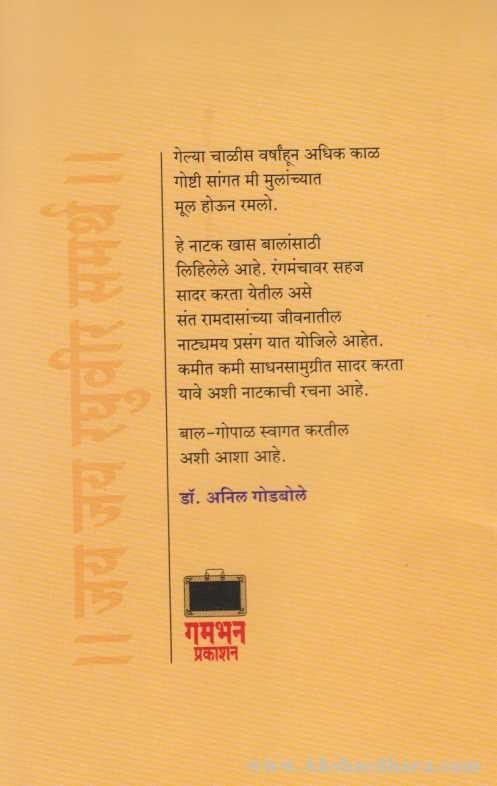 ॥ जय जय रघुवीर समर्थ ॥
गेल्या चाळीस वर्षांहून अधिक काळ
गोष्टी सांगत मी मुलांच्यात
मूल होऊन रमलो.
हे नाटक खास बालांसाठी
लिहिलेले आहे. रंगमंचावर सहज
सादर करता येतील असे
संत रामदासांच्या जीवनातील
नाट्यमय प्रसंग यात योजिले आहेत.
कमीत कमी साधनसामुग्रीत सादर करता
यावे अशी नाटकाची रचना आहे.
बाल-गोपाळ स्वागत करतील
अशी आशा आहे.
डॉ. अनिल गोडबोले
गमभन
प्रकाशन
www.Akshardhara.com